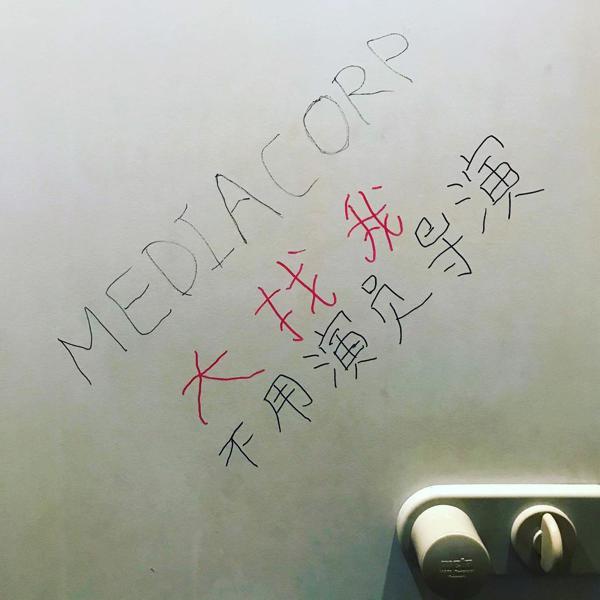 MEDIACORP
大找我
不用演员导演